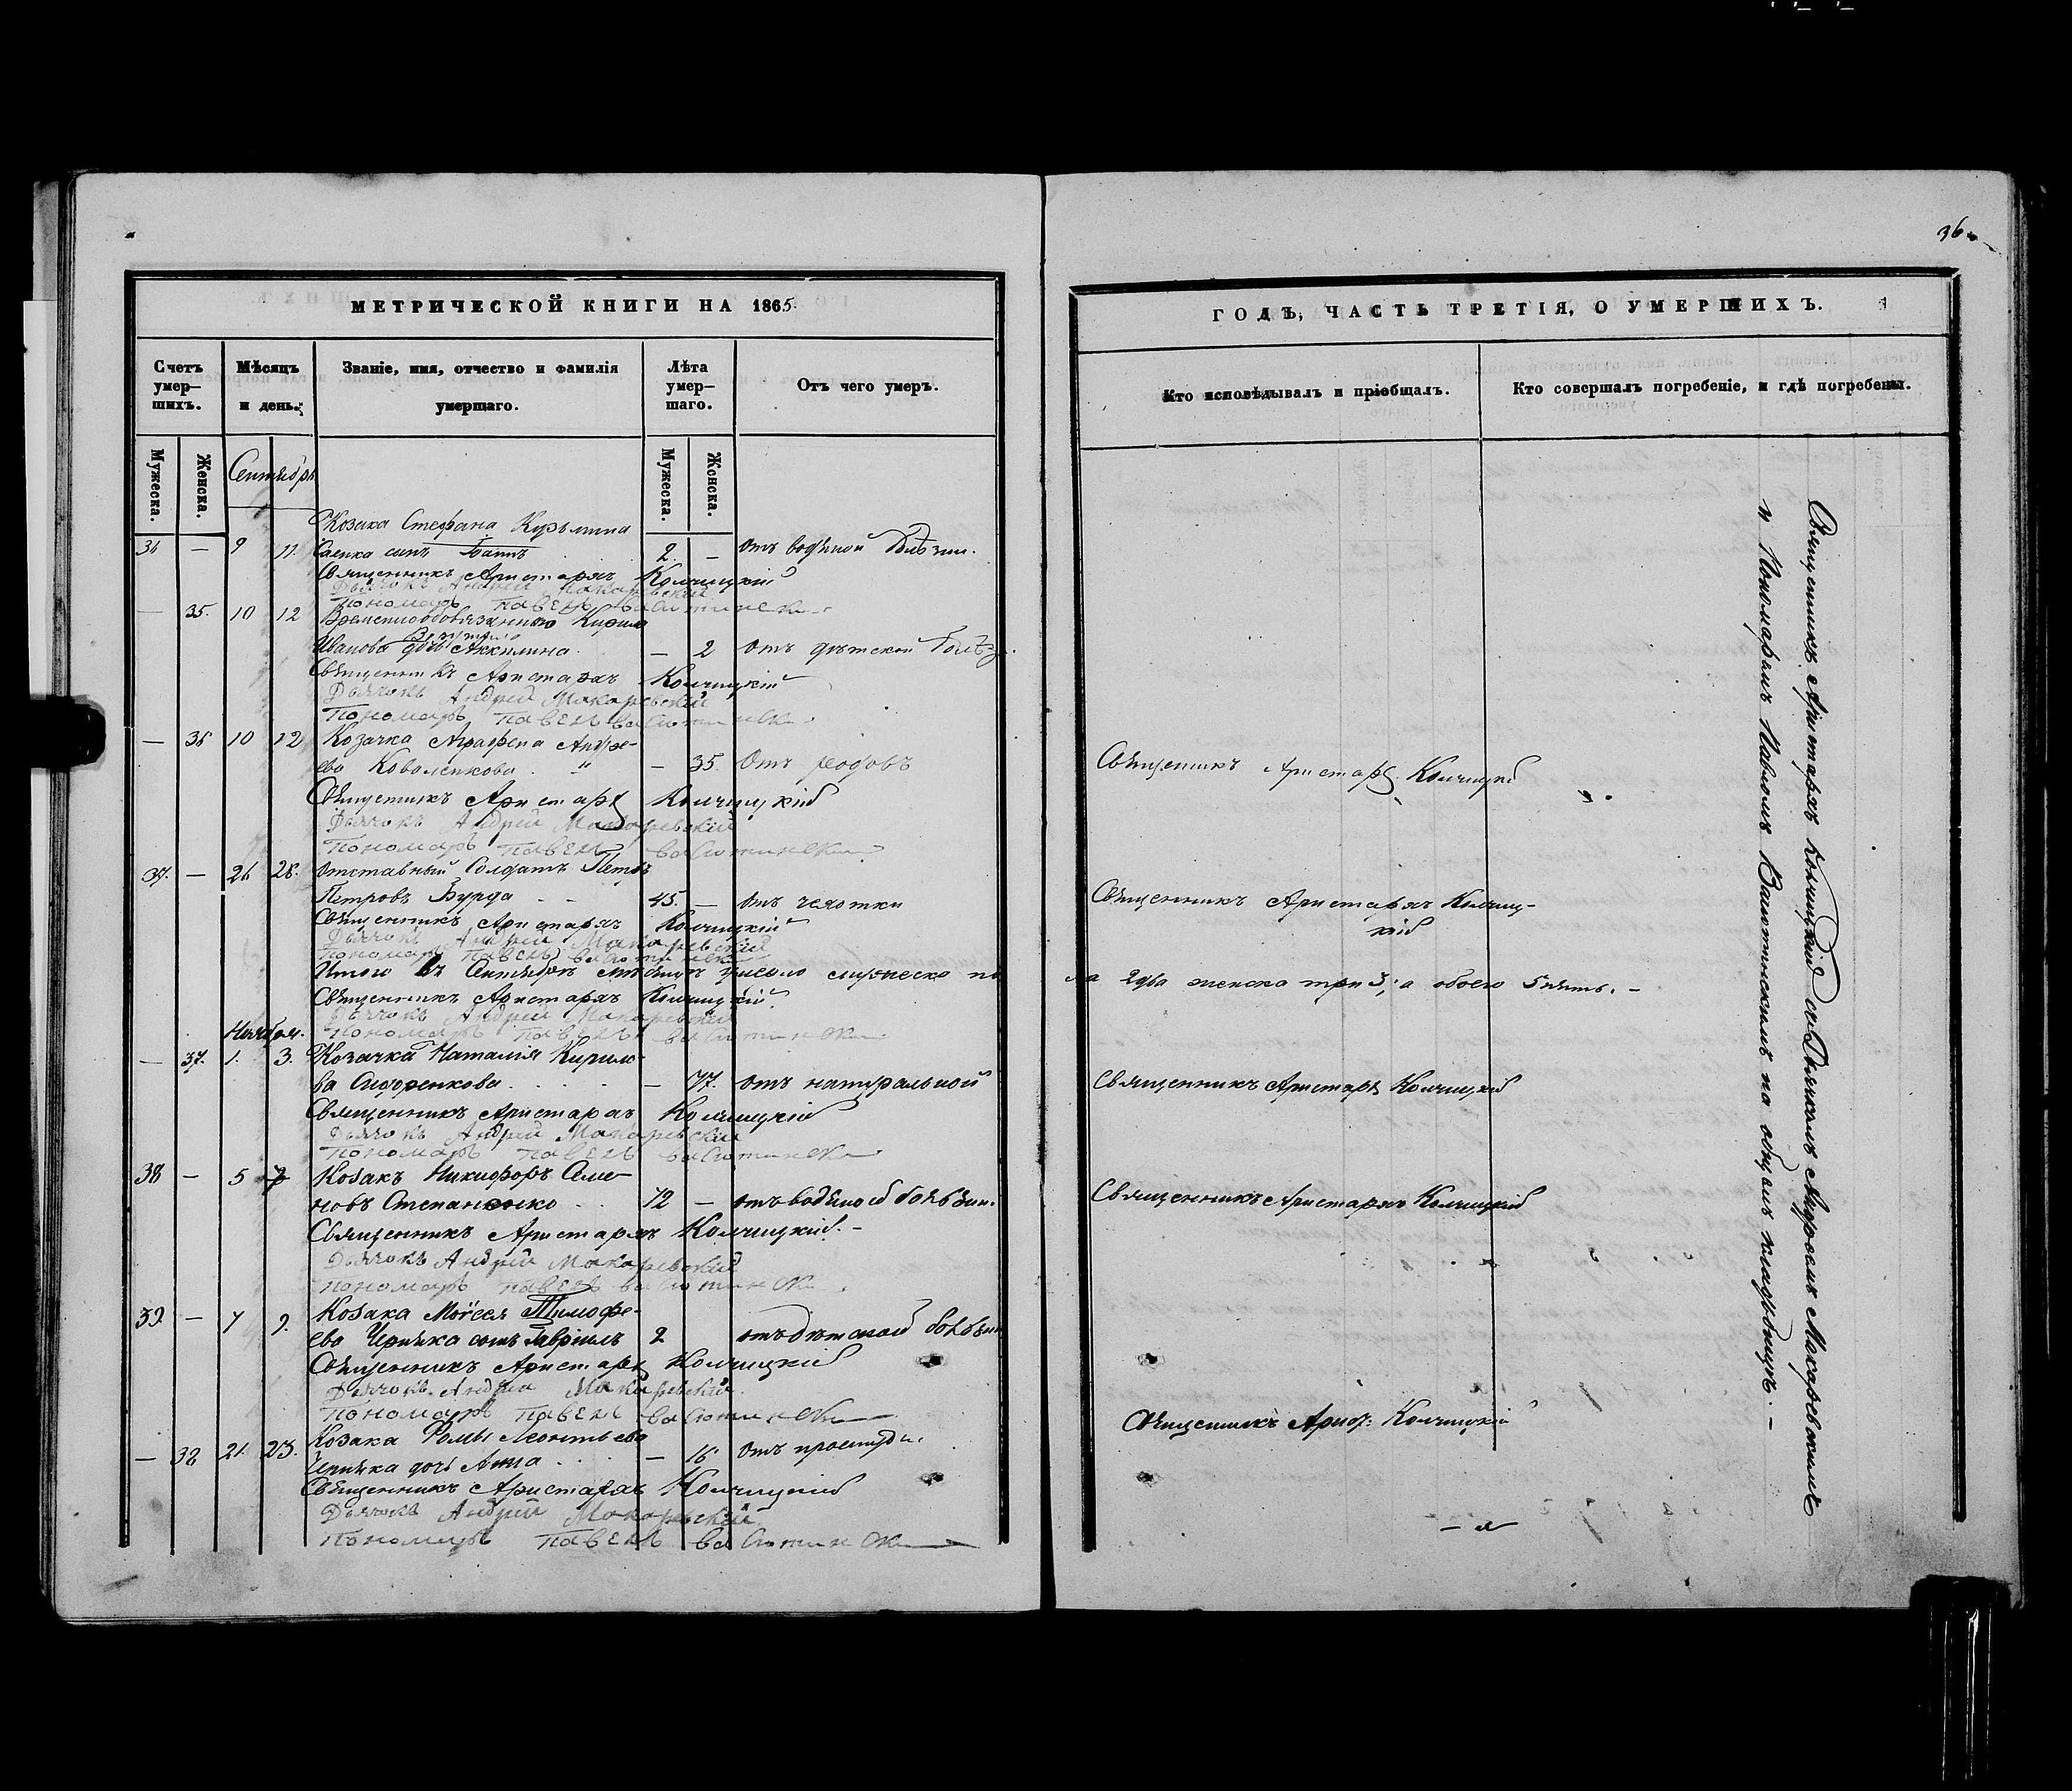 36
МЕТРИЧЕСКОЙ КНИГИ НА 1865.
Счетъ умер—шихъ.
Мѣсяцъ и день.
Званіе, имя, отчество и фамилія умершаго.
Лѣта умер—шаго.
Отъ чего умеръ.
Мужеска.
Женска.
Сентябрь
Мужеска.
Женска.
Козака Стефана Кузьмина
34 — 9 11. Саенка сынъ Іоаннъ 2. — отъ водяной болѣзни.
Священникъ Аристархъ Колчицкій
Дьячокъ Андрей Макаревскій
Пономарь Павелъ
— 35. 10 12 Временнообязанного Кирила
Иванова дочь Аккилина — 2 отъ дѣтской болѣз.
Священникъ Аристархъ Колчицкій
Дьячокъ Андрей Макаревскій
Пономарь Павелъ
— 36 10 12 Козачка Аграфена Андре-
ева Коваленкова — 35. Отъ родовъ
Священникъ Аристархъ Колчицкій
Дьячокъ Андрей Макаревскій
Пономарь Павелъ
37. — 26 28. Отставный Солдатъ Петръ
Петровъ Бурда 45. — отъ чехотки
Священникъ Аристархъ Колчицкій
Дьячокъ Андрей Макаревскій
Пономарь Павелъ
Итого въ Сентябрѣ мѣсяцѣ умерло мужеска по
Священникъ Аристархъ Колчицкій
Дьячокъ Андрей Макаревскій
Пономарь Павелъ
Ноября.
— 37. 1. 3. Козачка Наталія Кирило-
ва Сидоренкова — 77. отъ натуральной
Священникъ Аристархъ Колчицкій
Дьячокъ Андрей Макаревскій
Пономарь Павелъ
38 — 5 7 Козакъ Никифоръ Семе-
новъ Степаненко 72 — отъ водяной болѣзни.
Священникъ Аристархъ Колчицкій. —
Дьячокъ Андрей Макаревскій
Пономарь Павелъ
39. — 7 9. Козака Моѵсея Тимофе-
ева Черняка сынъ Гавріилъ 2 отъ дѣтской болѣзни
Священникъ Аристархъ Колчицкій
Дьячокъ Андрей Макаревскій
Пономарь Павелъ
Козака Фомы Леонтьева
— 38 21. 23. Черняка дочь Анна — 16 отъ простуды.
Священникъ Аристархъ Колчицкій
Дьячокъ Андрей Макаревскій
Пономарь Павелъ
ГОДЪ, ЧАСТЬ ТРЕТІЯ, О УМЕРШИХЪ.
Кто исповѣдывалъ и пріобщалъ.
Кто совершалъ погребеніе, и гдѣ погребены.
Священникъ Аристархъ Колчицкій
Священникъ Аристархъ Колчиц-
кій
ла 2 два женска три 3, а обоего 5 пять. —
Священникъ Аристархъ Колчицкій
Священникъ Аристархъ Колчицкій
Священникъ Арист: Колчицкій
Священникъ Аристархъ Колчицкій съ Дьячкомъ Андреемъ Макаревскимъ
и Пономаремъ Павломъ на общемъ кладбищѣ. —